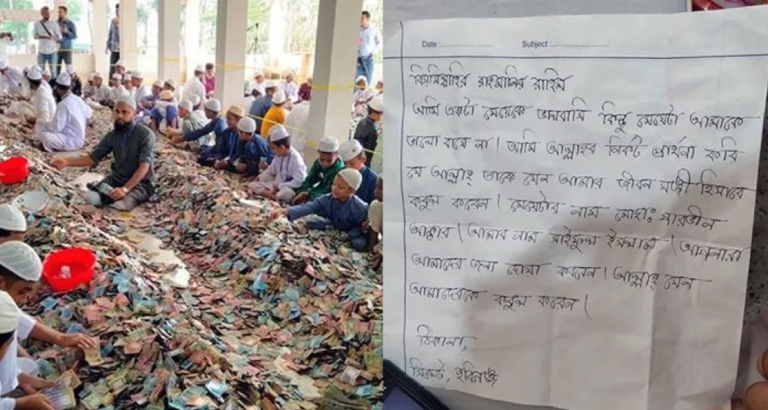 Date : Subject :
বিসমিল্লাহির রাহমানির রাহিম
আমি একটা মেয়েকে ভালবাসি কিন্তু মেয়েটা আমাকে
ভালো বাসে না। আমি আল্লাহর নিকট প্রার্থনা করি
যে আল্লাহ তাকে যেন আমার জীবন সঙ্গী হিসাবে
কবুল করেন। মেয়েটার নাম মোছাঃ শারভীন
আক্তার। আমার নাম সাইফুল ইসলাম। আপনারা
আমাদের জন্য দোয়া করবেন। আল্লাহ যেন
আমাদেরকে কবুল করেন।
ঠিকানা,
সিলেট, হবিগঞ্জ